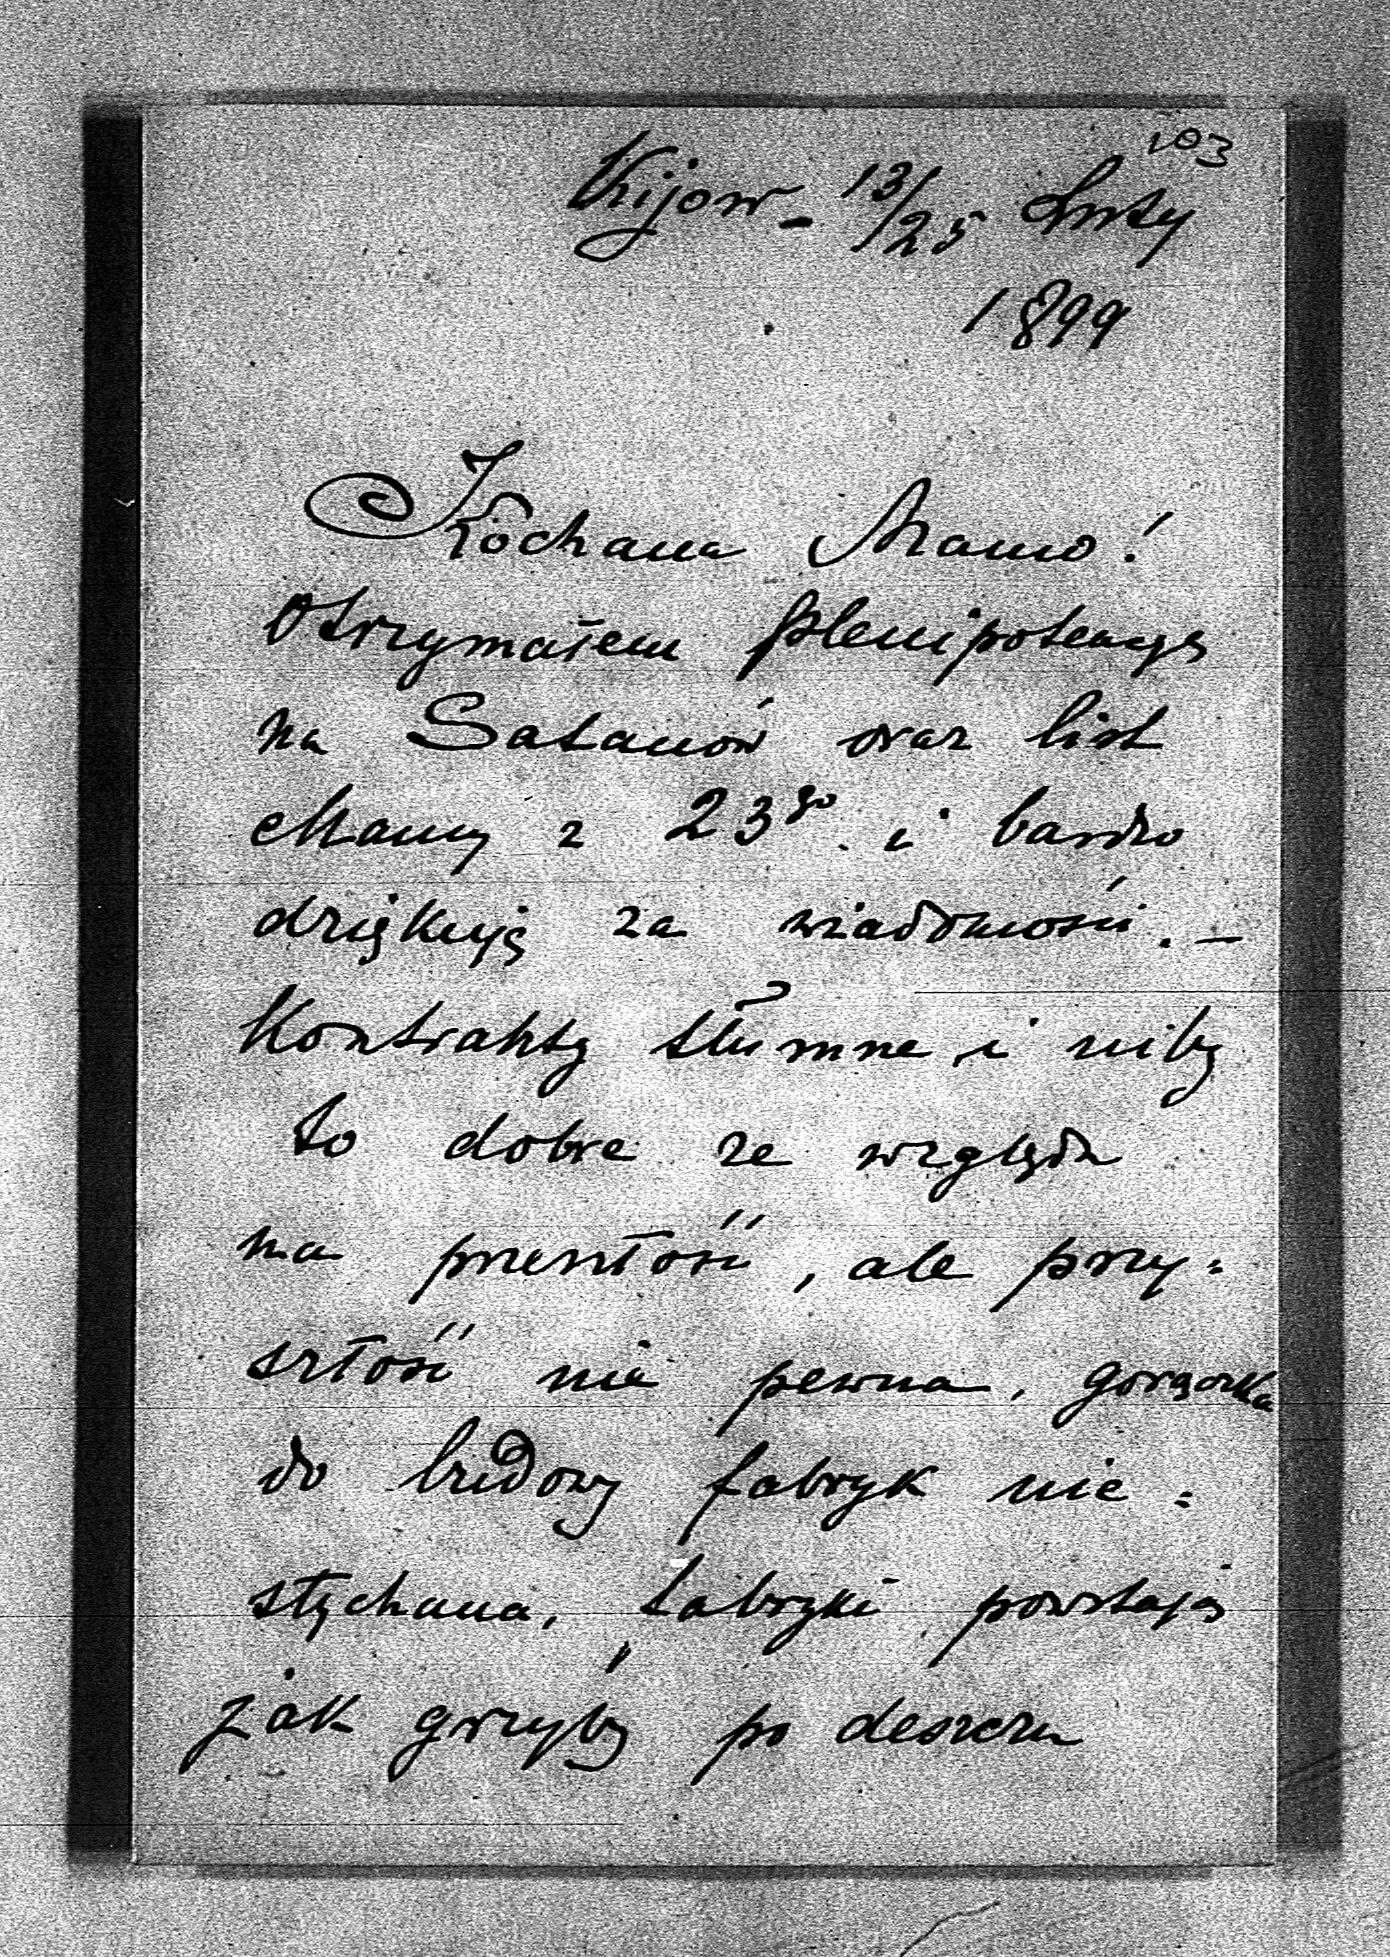 103
Kijow - 13/25 Luty
1899
Kochana Mamo!
Otrzymałem plenipotencyę
na Satanów oraz list
Mamy z 23go. i bardzo
dziękuję za wiadomości. —
Kontrakty tłumne i niby
to dobre ze względu
na przeszłość, ale przy=
szłość nie pewna, gorączka
do budowy fabryk nie=
słychana, fabryki powstają
jak grzyby po deszczu